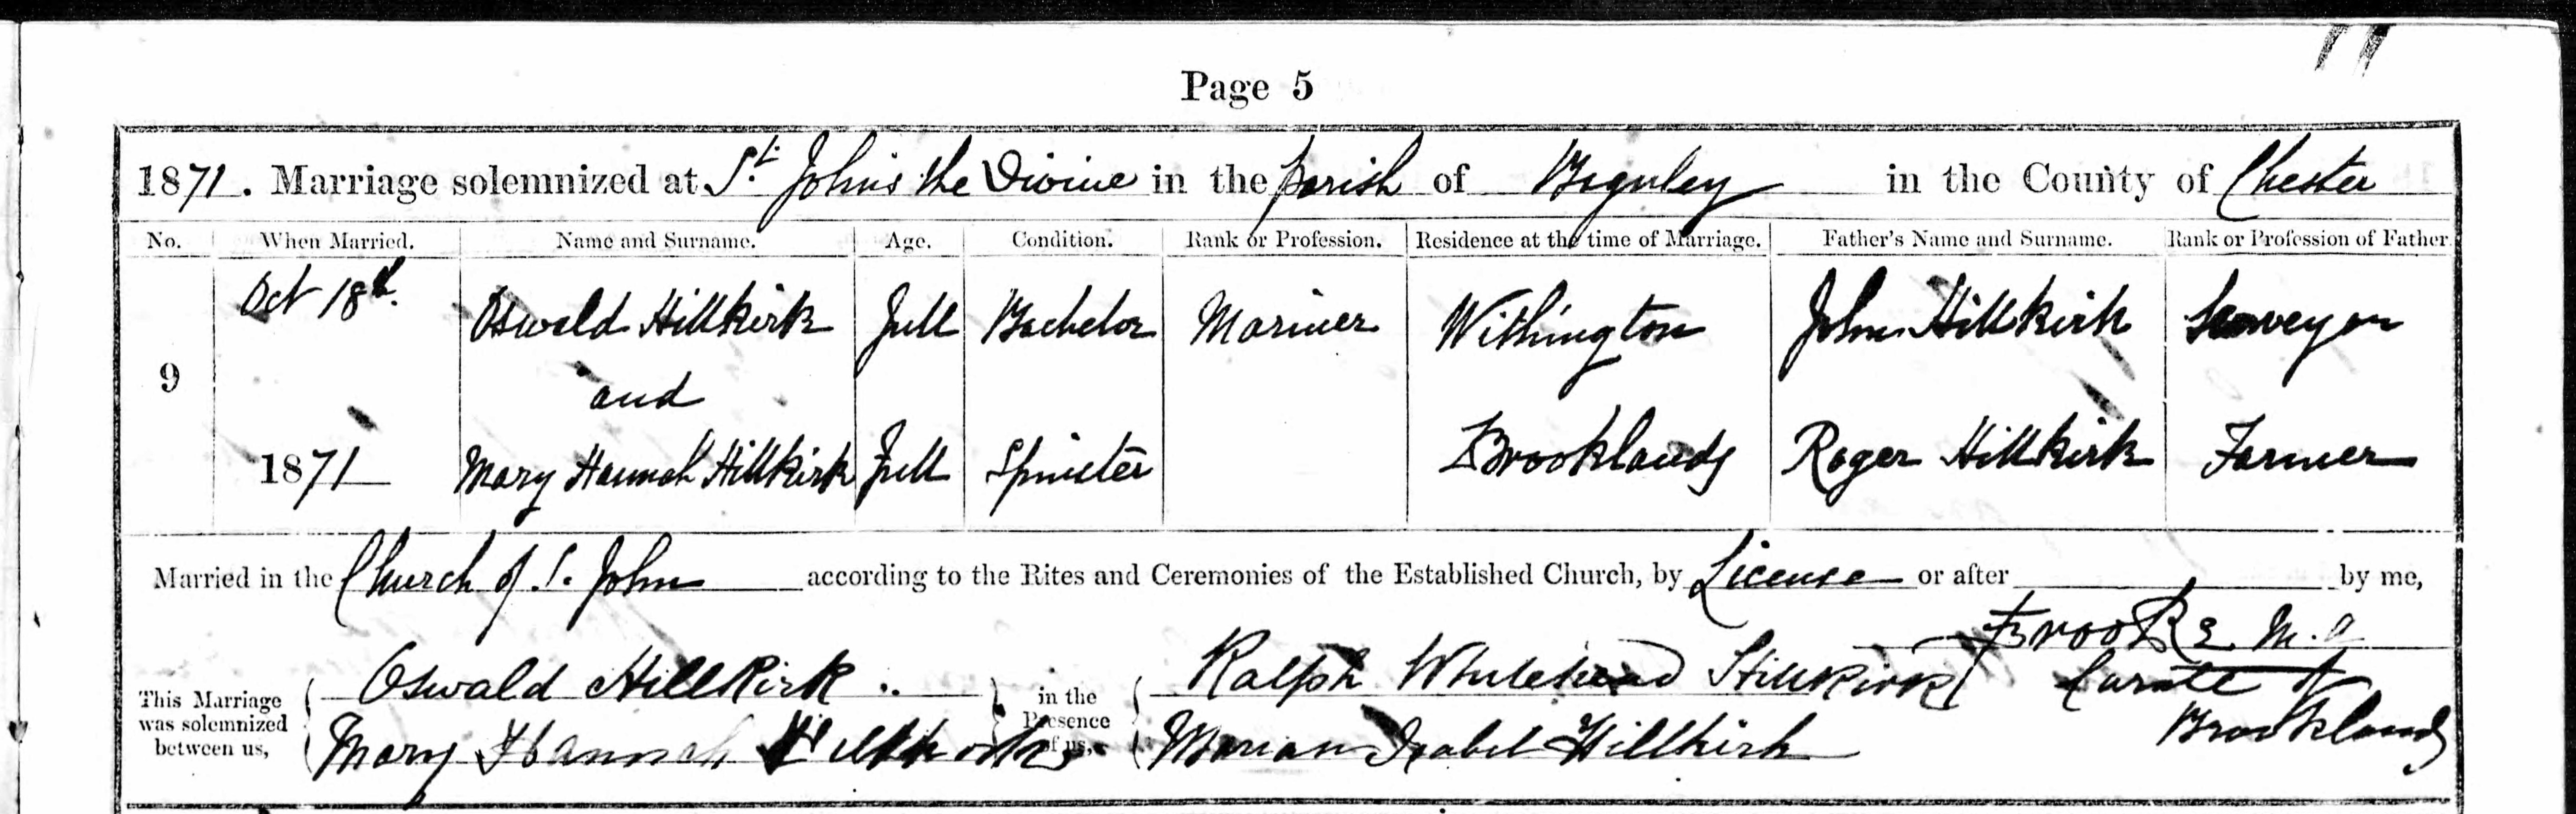 Page 5
1871. Marriage solemnized at St. John's the Divine in the parish of Baguley in the County of Chester
No. When Married. Name and Surname. Age. Condition. Rank or Profession. Residence at the time of Marriage. Father's Name and Surname. Rank or Profession of Father.
Oct 18th. Oswald Hillkirk Full Bachelor Mariner Withington John Hillkirk Surveyor
9 and
1871 Mary Hannah Hillkirk Full Spinster Brooklands Roger Hillkirk Farmer
Married in the Church of S. John according to the Rites and Ceremonies of the Established Church, by License or after by me,
Brooke M.A
This Marriage was solemnized between us, Oswald Hillkirk in the Presence of us, Ralph Whitehead Hillkirk Curate of
Mary Hannah Hillkirk Marian Isabel Hillkirk Brooklands